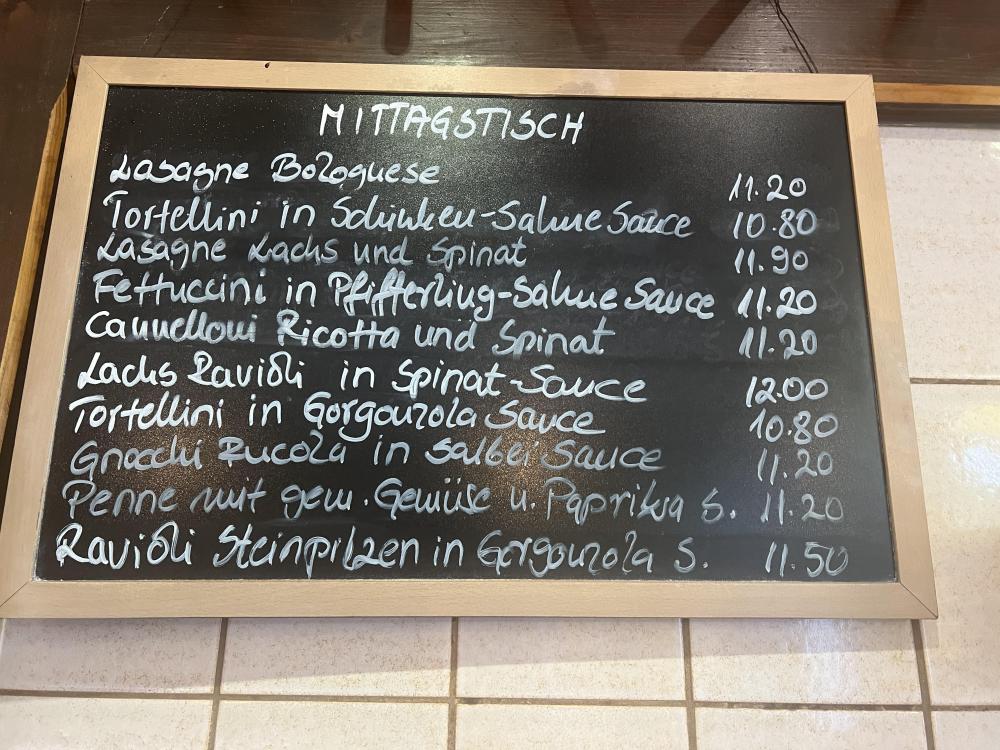 MITTAGSTISCH
Lasagne Bolognese 11.20
Tortellini in Schinken-Sahne Sauce 10.80
Lasagne Lachs und Spinat 11.90
Fettuccini in Pfifferling-Sahne Sauce 11.20
Cannelloni Ricotta und Spinat 11.20
Lachs Ravioli in Spinat-Sauce 12.00
Tortellini in Gorgonzola Sauce 10.80
Gnocchi Rucola in Salbei Sauce 11.20
Penne mit gem. Gemüse u. Paprika S. 11.20
Ravioli Steinpilzen in Gorgonzola S. 11.50